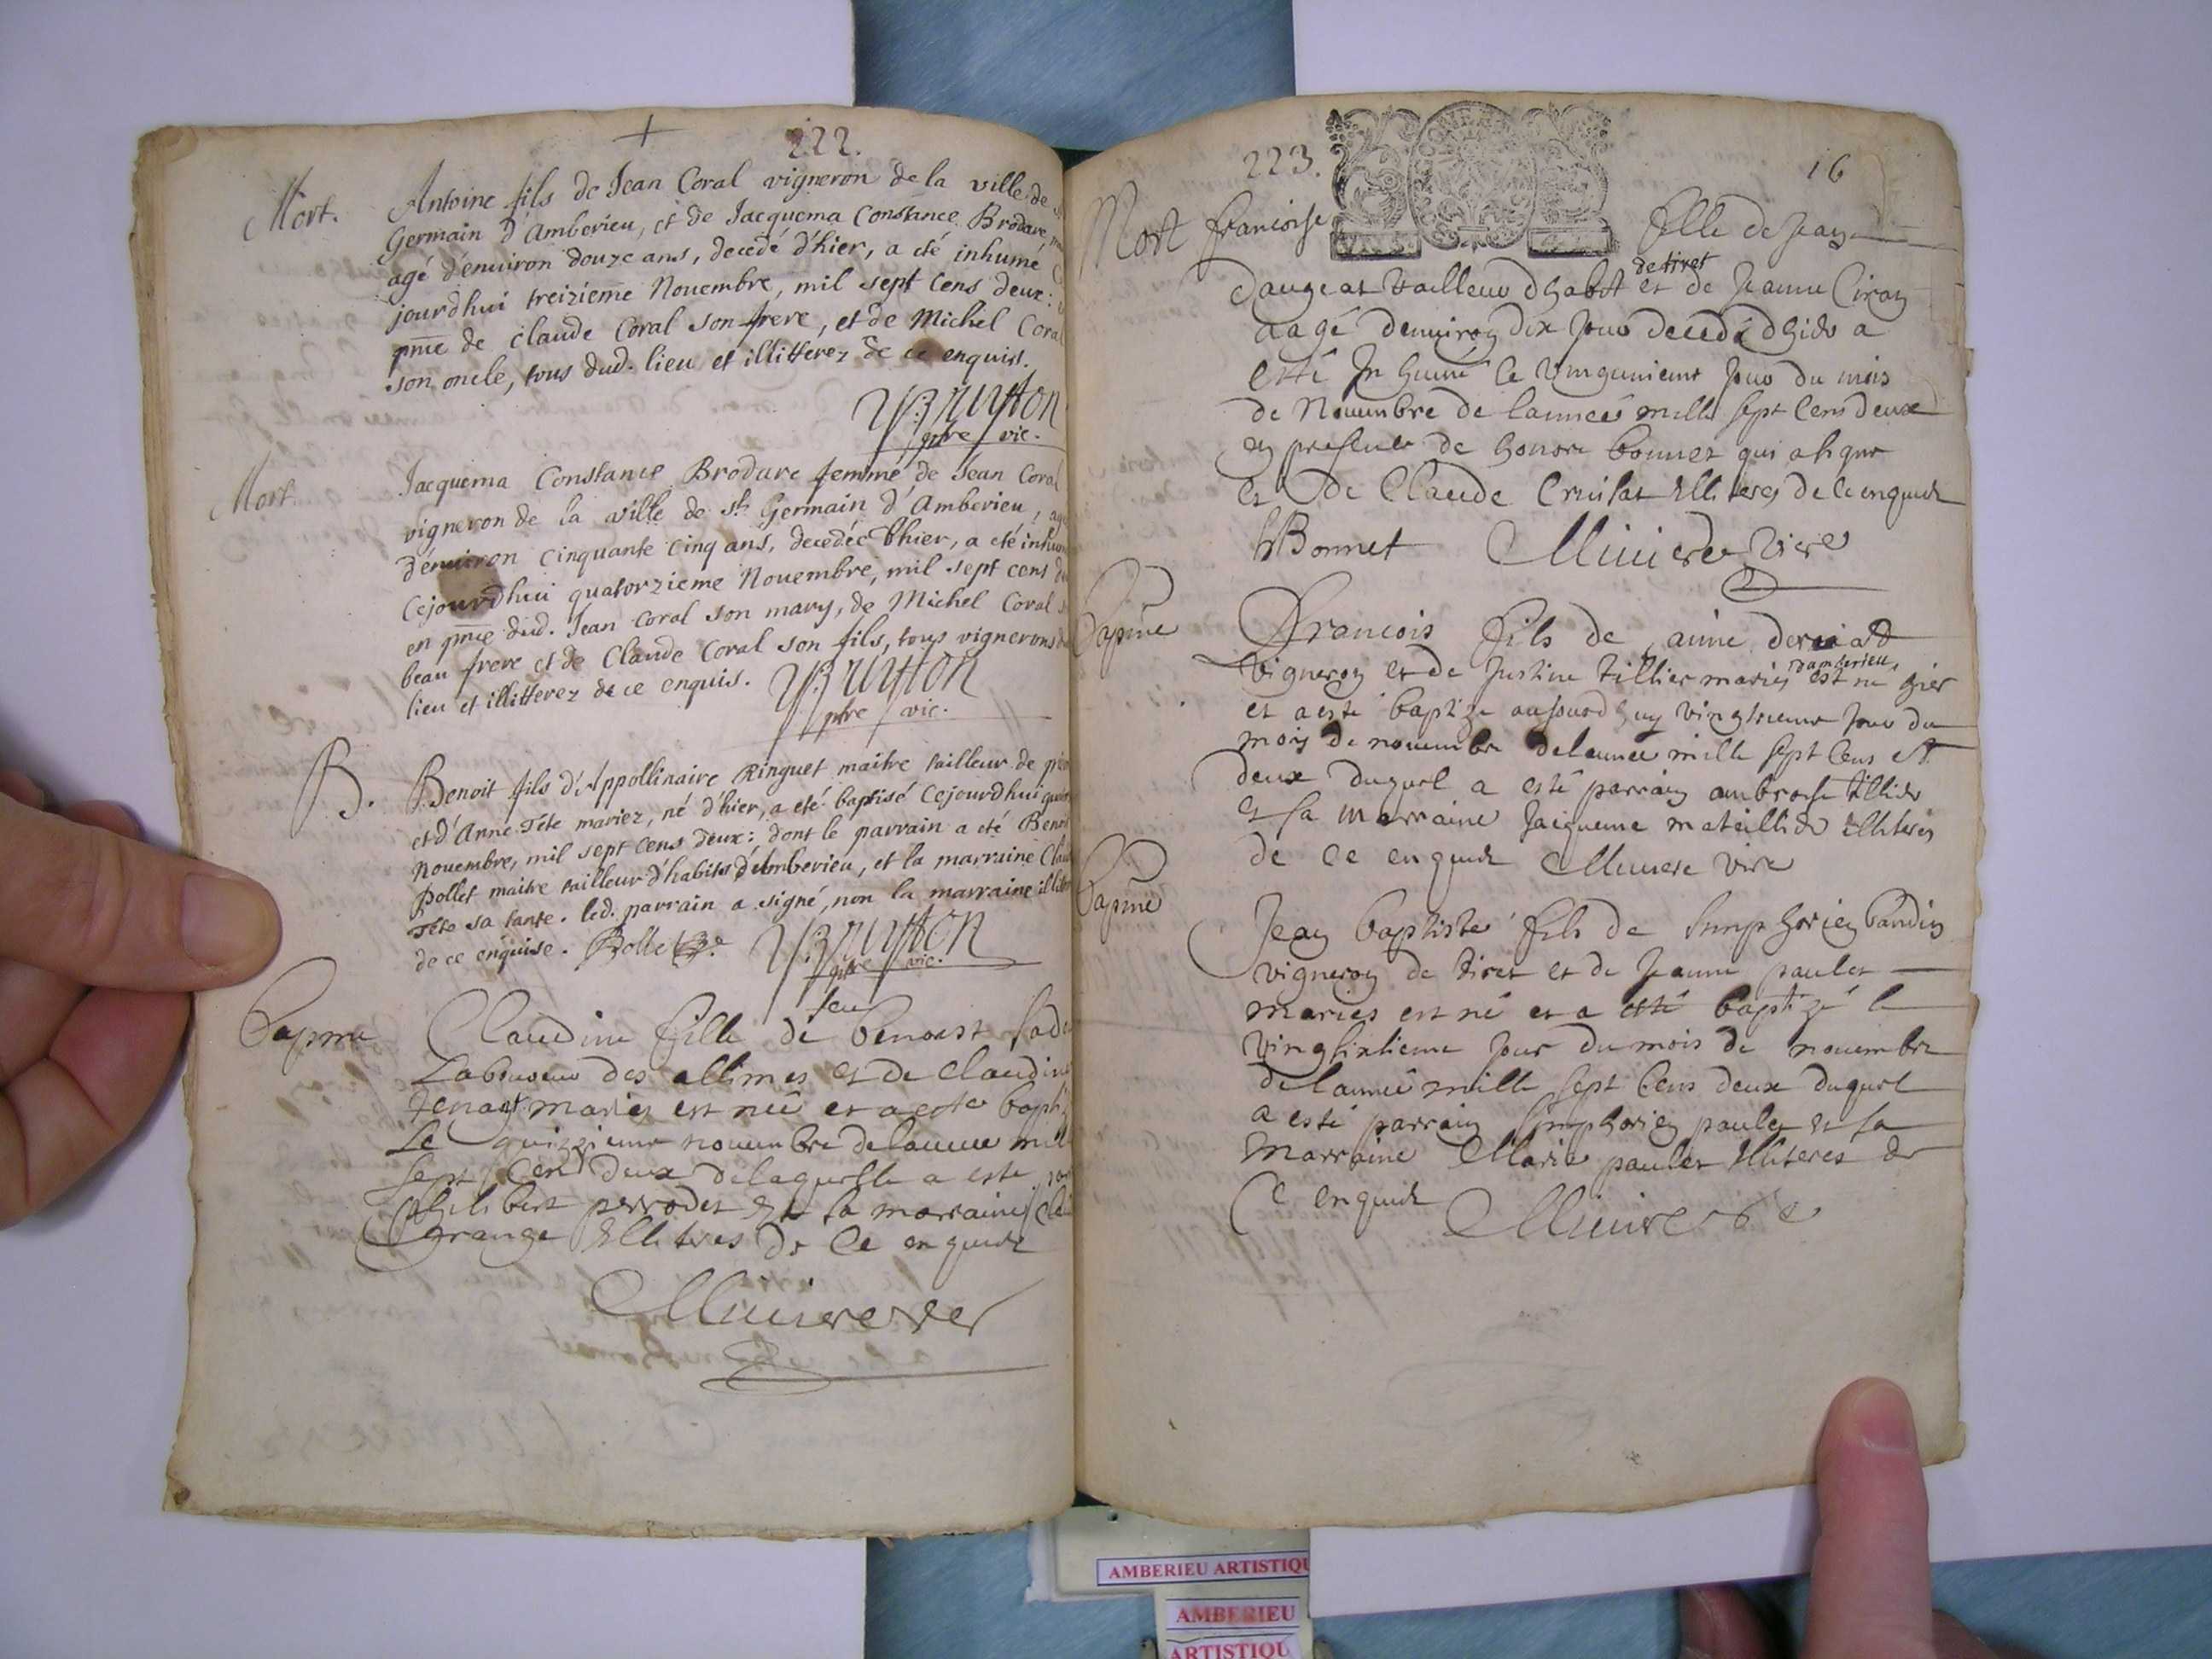 222.
Mort. Antoine fils de Jean Coral vigneron de la ville de
Germain d'Amberieu, et de Jacquema Constance Brodare
agé d'enuiron douze ans, decedé d'hier, a eté inhumé
jourd'hui treizieme Nouembre, mil sept cens deux:
pnce de claude Coral son frere, et de Michel Coral
son oncle, tous dud. lieu et illitterez de ce enquis.
pbre vic.
Mort. Jacquema Constance Brodare femme de Jean Coral
vigneron de la ville de St Germain d'Amberieu,
d'enuiron cinquante cinq ans, decedée d'hier, a eté
Cejourd'hui quatorzieme Nouembre, mil sept cens
en pnce dud. Jean Coral son mary, de Michel Coral
beau frere et de Claude Coral son fils, tous vignerons
lieu et illitterez de ce enquis.
pbre vic.
B. Benoit fils d'Appollinaire Ringuet maitre tailleur de
et d'Anne Tête mariez, né d'hier, a eté baptisé Cejourd'hui
Nouembre, mil sept cens deux: dont le parrain a eté
Pollet maitre tailleur d'habits d'Amberieu, et la marraine
Tête sa tante. led. parrain a signé, non la marraine
de ce enquise.
pbre vic.
feu
Claudine fille de benoist
Laboureur des allimes et de claudine
maries est née et a esté
Le quinzieme nouembre de lannee
sept Cens deux de laquelle a este
philibert perrodet et sa marraine
grange Illiteres de Ce enquis
223.
16
Mort francoise fille de Jean
de tiret
dangeat tailleur dhabit et de Jeanne
aagé denuiron dix jour decedé dhier a
esté Inhumé le vingunieme jour du mois
de Nouembre de lannee mille sept Cens deux
en presence de honore bonnet qui a signe
et de Claude Illiteres de ce enquis
hBonnet
Francois fils de aime
damberieu
vigneron et de Justine tillier maries est ne hier
et a este baptize aujourdhuy jour du
mois de nouembre de lannee mille sept Cens et
deux duquel a esté parrain ambroise tillier
et sa marraine Jacqueme Illiteres
de ce enquis
Jean baptiste fils de Simphorien
vigneron de tiret et de Jeanne paulet
maries est né et a esté baptizé le
vingsixieme jour du mois de nouembre
de lannee mille sept Cens deux duquel
a esté parrain Simphorien paulet et sa
marraine Marie paulet Illiteres de
Ce enquis
AMBERIEU ARTISTIQU
AMBERIEU
ARTISTIQU